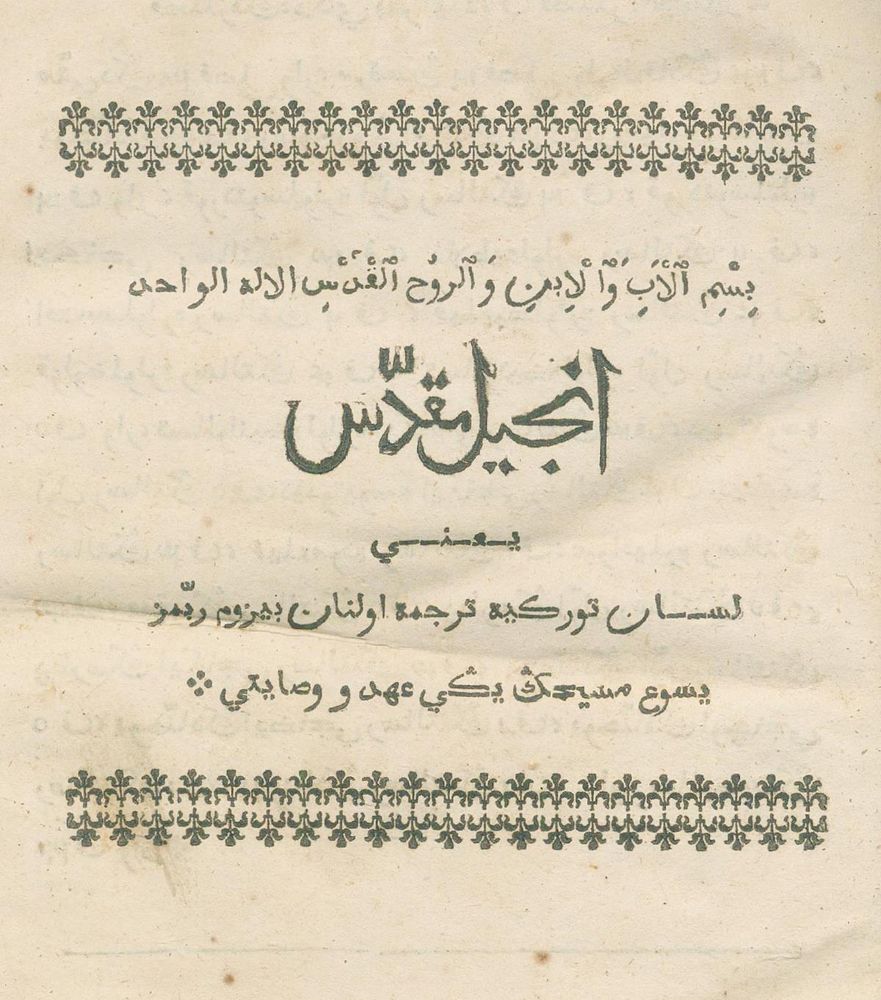 بِسْمِ ٱلْأَبِ وَٱلْاِبنِ وَٱلروُح ٱلقُدُسِ الاله الواحد
انجيل مقدّس
يـعـنـي
لسـان توركيه ترجمه اولنان بيزوم ربّمز
يسوع مسيحڭ يڭي عهد و وصايتي